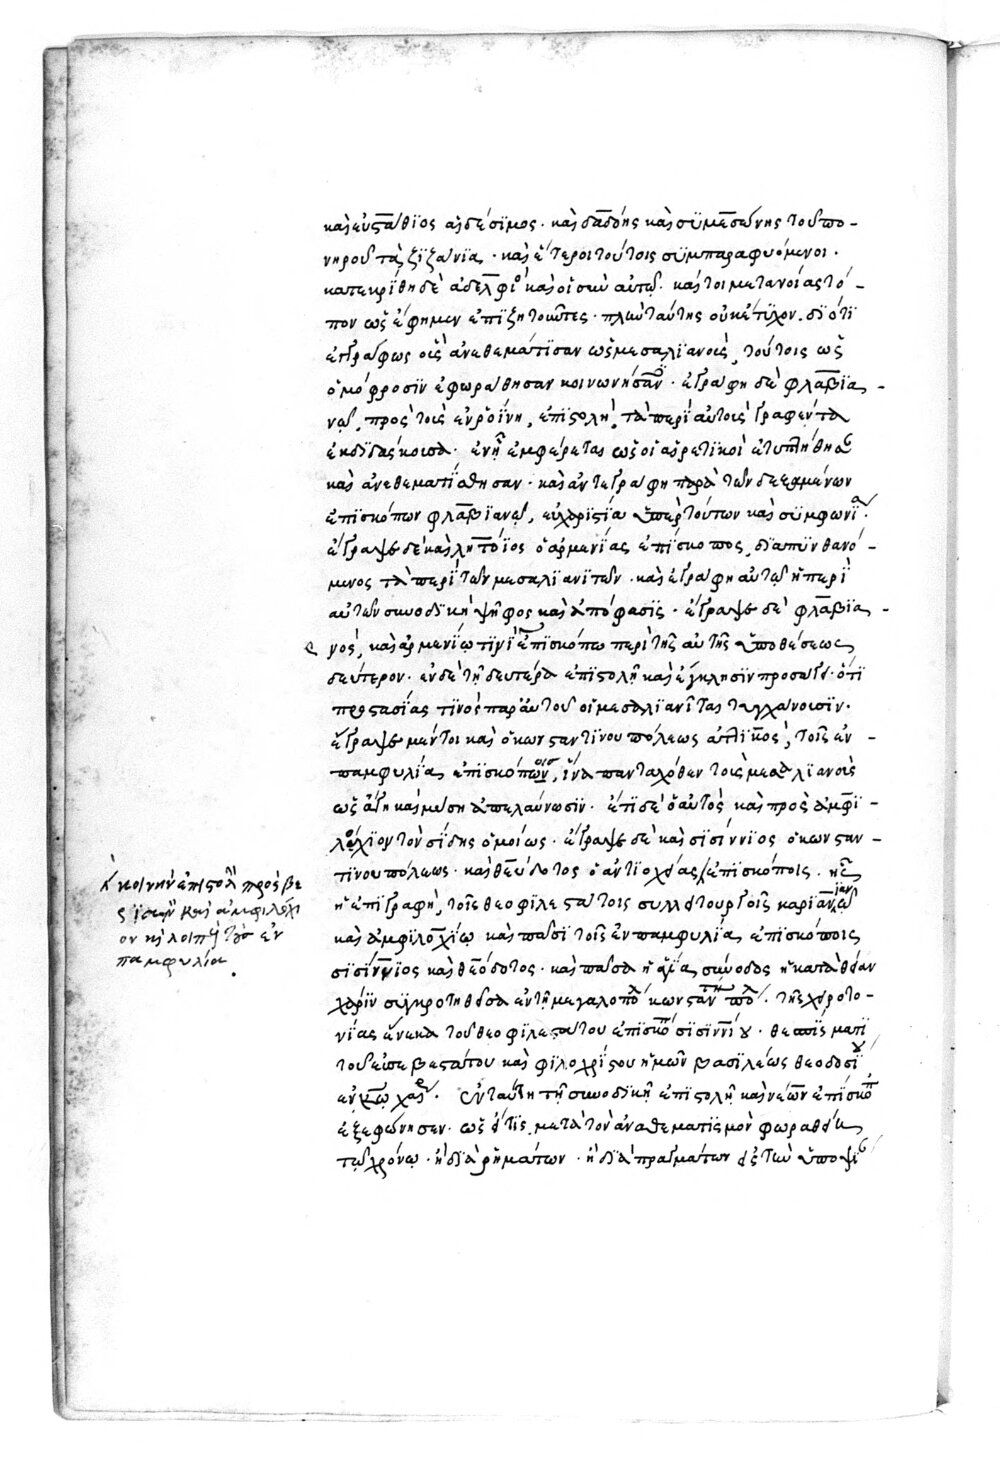 καὶ εὐστάθϊος αἰδέσϊμος · καὶ δαδώης καὶ σϋμεσώνης τοῦ πο-
νηροῦ τὰ ζϊζάνϊα · καὶ ἕτεροι τούτοις σϋμπαραφυόμενοι ·
κατεκρίθη δὲ ἀδέλφιος καὶ οἱ σὺν αὐτῷ · καίτοι μετανοίας τό-
πον ὡς ἔφημεν ἐπϊζητοῦντες · πλὴν ταύτης οὐκ ἔτϋχον · δϊότϊ
ἐγγράφως οἷς ἀνεθεμάτϊσαν ὡς μεσαλϊανοῖς, τούτοις ὡς
ὁμόφροσϊν ἐφωράθησαν κοινωνήσαντες · ἐγράφη δὲ φλαβϊα-
νῷ, πρὸς τοὺς ἐν ὀσροΐνη, ἐπϊστολὴ, τὰ περὶ αὐτοὺς γραφέντα
ἐκδϊδάσκουσα · ἐν ᾗ ἐμφέρεται ὡς οἱ αἱρετϊκοὶ ἐτυπτήθησαν
καὶ ἀνεθεματΐσθησαν · καὶ ἀντεγράφη παρὰ τῶν δεξαμένων
ἐπϊσκόπων φλαβϊανῷ, εὐχαρϊστία ὑπὲρ τούτων καὶ σϋμφωνΐα ·
ἔγραψε δὲ καὶ λητόϊος ὁ ἀρμενίας ἐπΐσκοπος, δϊαπϋνθανό-
μενος τὰ περὶ τῶν μεσαλϊανϊτῶν · καὶ ἐγράφη αὐτῷ ἡ περὶ
αὐτῶν συνοδϊκὴ ψῆφος καὶ ἀπόφασϊς · ἔγραψε δὲ φλαβϊα-
νὸς, καὶ ἀρμενίῳ τϊνὶ ἐπϊσκόπω περὶ τῆς αὐτῆς ὑποθέσεως
δεύτερον · ἐν δὲ τῇ δευτέρα ἐπϊστολῇ καὶ ἔγκλησϊν προσάγει · ὅτϊ
προστασίας τϊνὸς παρ' αὐτοῦ οἱ μεσαλϊανῖται τυγχάνουσϊν ·
ἔγραψε μέντοι καὶ ὁ κωνσταντϊνουπόλεως ἀττϊκὸς, τοῖς ἐν
παμφυλία, ἐπϊσκόποις, ἵνα πανταχόθεν τοὺς μεσαλϊανοὺς
ὡς ἄγη καὶ μύση ἀπελαύνωσϊν · ἔτϊ δὲ ὁ αὐτὸς καὶ πρὸς ἀμφϊ-
λόχϊον τὸν σίδης ὁμοίως · ἔγραψε δὲ καὶ σϊσίννϊος ὁ κωνσταν-
τϊνουπόλεως · καὶ θεόδοτος ὁ ἀντϊοχείας, ἐπϊσκόποις · ἧς
ἡ ἐπϊγραφὴ, τοῖς θεοφϊλεστάτοις συλλειτουργοῖς καρϊανῷ
καὶ ἀμφϊλοχίῳ καὶ πᾶσϊ τοῖς ἐν παμφυλία ἐπϊσκόποις
σϊσίννϊος καὶ θεόδοτος · καὶ πᾶσα ἡ ἁγία σύνοδος ἡ κατὰ θεοῦ
χάρϊν συγκροτηθεῖσα ἐν τῇ μεγαλοπόλει κωνσταντϊνουπόλει · τῆς χειροτο-
νίας ἕνεκα τοῦ θεοφϊλεστάτου ἐπϊσκόπου σϊσϊννίου · θεσπΐσματϊ
τοῦ εὐσεβεστάτου καὶ φϊλοχρίστου ἡμῶν βασϊλέως θεοδοσΐου
ἐν κυρίῳ χαίρειν · ἐν ταύτη τῇ συνοδϊκῇ ἐπϊστολῇ καὶ νέων ἐπΐσκοπος
ἐξεφώνησεν · ὡς εἴ τϊς, μετὰ τὸν ἀναθεματϊσμὸν φωραθείη
τῷ χρόνῳ · ἢ δϊὰ ῥημάτων · ἢ δϊὰ πραγμάτων εἰς τὴν ὑποψΐαν
κοινὴν ἐπιστολὴν πρὸς βε
ρϊνϊανὸν καὶ ἀμφιλόχι
ον καὶ λοιποὺς τοὺς ἐν
παμφυλία.